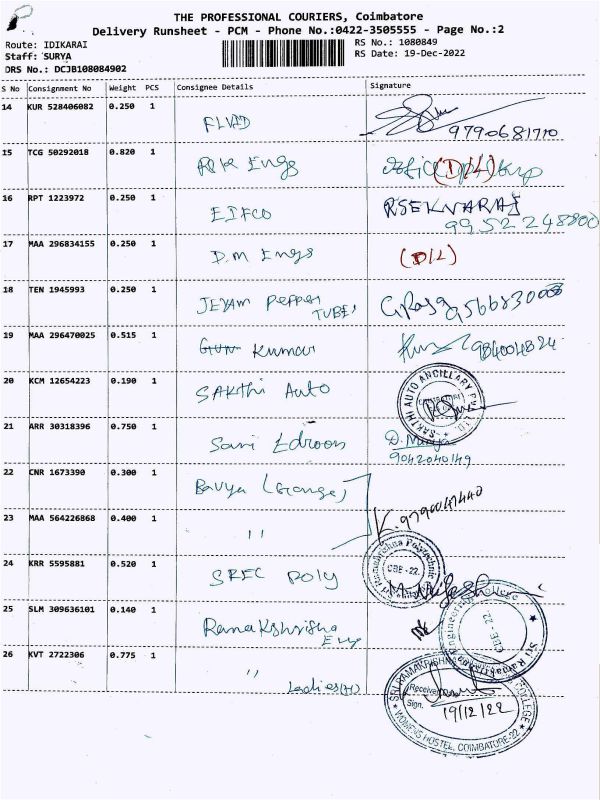 THE PROFESSIONAL COURIERS, Coimbatore
Delivery Runsheet - PCM - Phone No.:0422-3505555 - Page No.:2
Route: IDIKARAI
RS No.: 1080849
Staff: SURYA
RS Date: 19-Dec-2022
DRS No.: DCJB108084902
S No Consignment No Weight PCS Consignee Details Signature
14 KUR 528406082 0.250 1
9790681710
15 TCG 50292018 0.820 1 Engs (D/L)
16 RPT 1223972 0.250 1 EIFCO
17 MAA 296834155 0.250 1 D.M Engs (D/L)
18 TEN 1945993 0.250 1 JEYAM Pepper
TUBE,
19 MAA 296470025 0.515 1 Kumar
20 KCM 12654223 0.190 1 SAKthi Auto
SAKTHI AUTO ANCILLARY PVT. LTD.
21 ARR 30318396 0.750 1 D. Nanya
9042040149
22 CNR 1673390 0.300 1 Bavya
23 MAA 564226868 0.400 1 " K. 9790041440
24 KRR 5595881 0.520 1 SREC Poly
Sri Ramakrishna Polytechnic
CBE - 22.
25 SLM 309636101 0.140 1
Sri Ramakrishna Engineering College
CBE - 22.
26 KVT 2722306 0.775 1 "
Ladies(H)
SRI RAMAKRISHNA COLLEGE
Received
Sign.
19/12/22
WOMENS HOSTEL, COIMBATORE-22